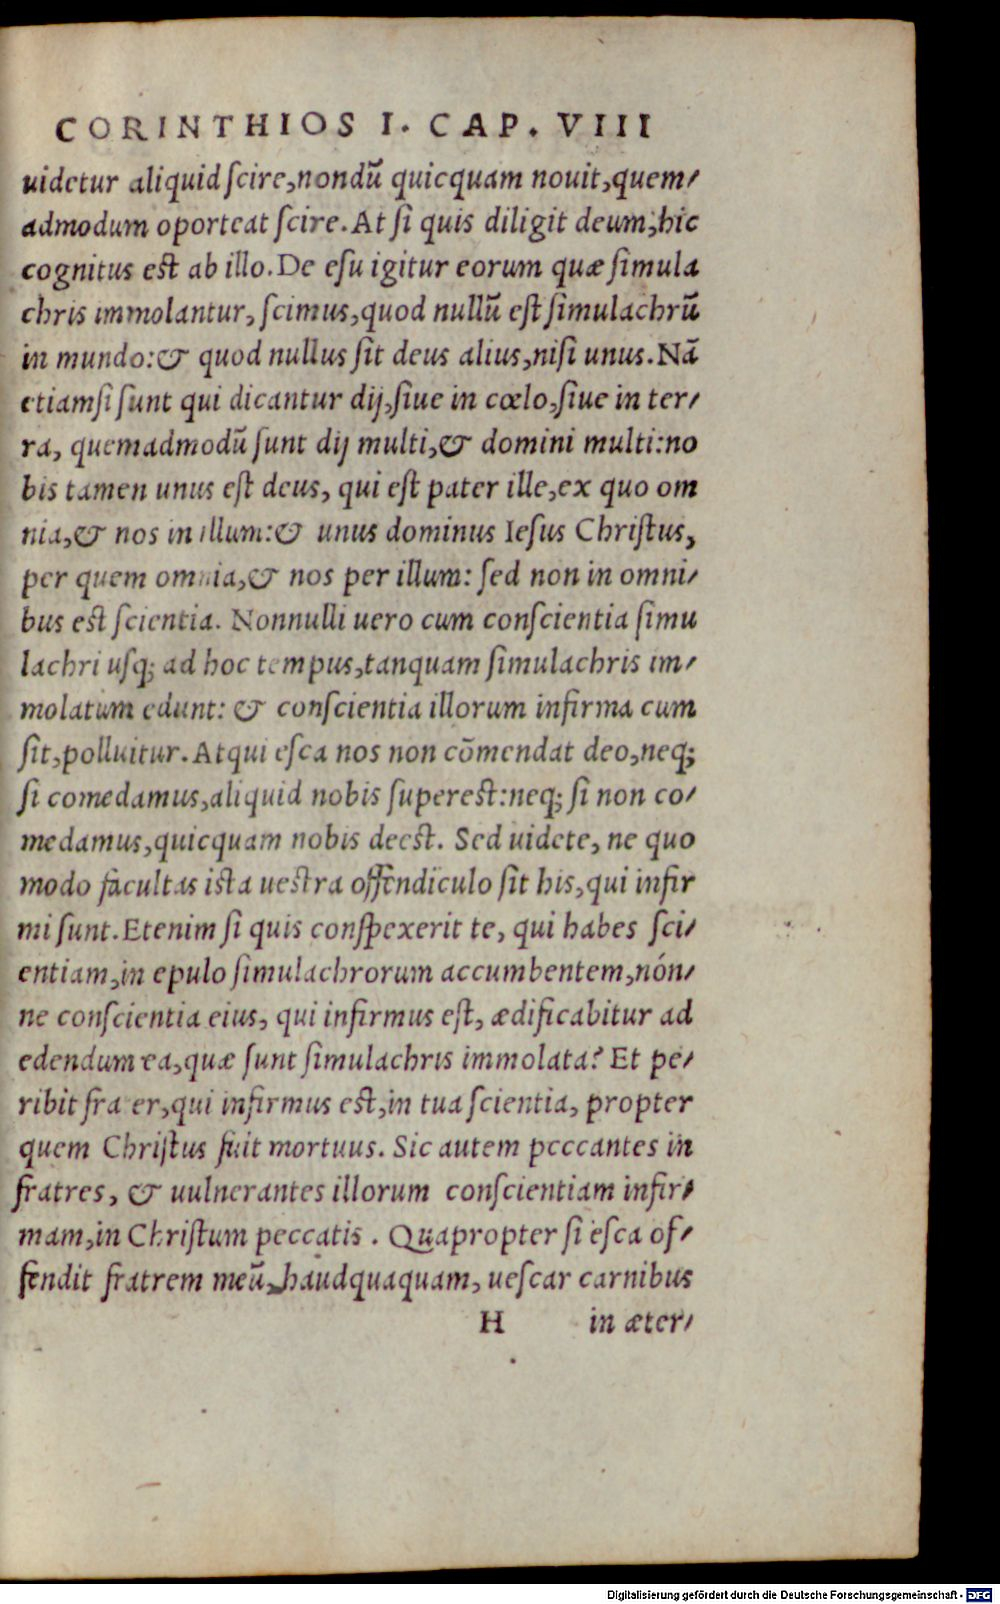 CORINTHIOS I. CAP. VIII
uidetur aliquid ſcire,nondũ quicquam nouit,quem⸗
admodum oporteat ſcire.At ſi quis diligit deum,hic
cognitus eſt ab illo.De eſu igitur eorum quæ ſimula
chris immolantur, ſcimus,quod nullũ eſt ſimulachrũ
in mundo:& quod nullus ſit deus alius,niſi unus.Nã
etiamſi ſunt qui dicantur dij,ſiue in cœlo,ſiue in ter⸗
ra, quemadmodũ ſunt dij multi,& domini multi:no
bis tamen unus eſt deus, qui eſt pater ille,ex quo om
nia,& nos in illum:& unus dominus Ieſus Chriſtus,
per quem omnia,& nos per illum: ſed non in omni⸗
bus eſt ſcientia. Nonnulli uero cum conſcientia ſimu
lachri uſq; ad hoc tempus,tanquam ſimulachris im⸗
molatum edunt: & conſcientia illorum infirma cum
ſit,polluitur.Atqui eſca nos non cõmendat deo,neq;
ſi comedamus,aliquid nobis ſupereſt:neq; ſi non co⸗
medamus,quicquam nobis deeſt. Sed uidete, ne quo
modo facultas iſta ueſtra offendiculo ſit his,qui infir
mi ſunt.Etenim ſi quis conſpexerit te, qui habes ſci⸗
entiam,in epulo ſimulachrorum accumbentem,nón⸗
ne conſcientia eius, qui infirmus eſt, ædificabitur ad
edendum ea,quæ ſunt ſimulachris immolata? Et pe⸗
ribit fra er,qui infirmus eſt,in tua ſcientia, propter
quem Chriſtus fuit mortuus. Sic autem peccantes in
fratres, & uulnerantes illorum conſcientiam infir⸗
mam,in Chriſtum peccatis . Quapropter ſi eſca of⸗
fendit fratrem meũ, haudquaquam, ueſcar carnibus
H in æter⸗
Digitalisierung gefördert durch die Deutsche Forschungsgemeinschaft - DFG